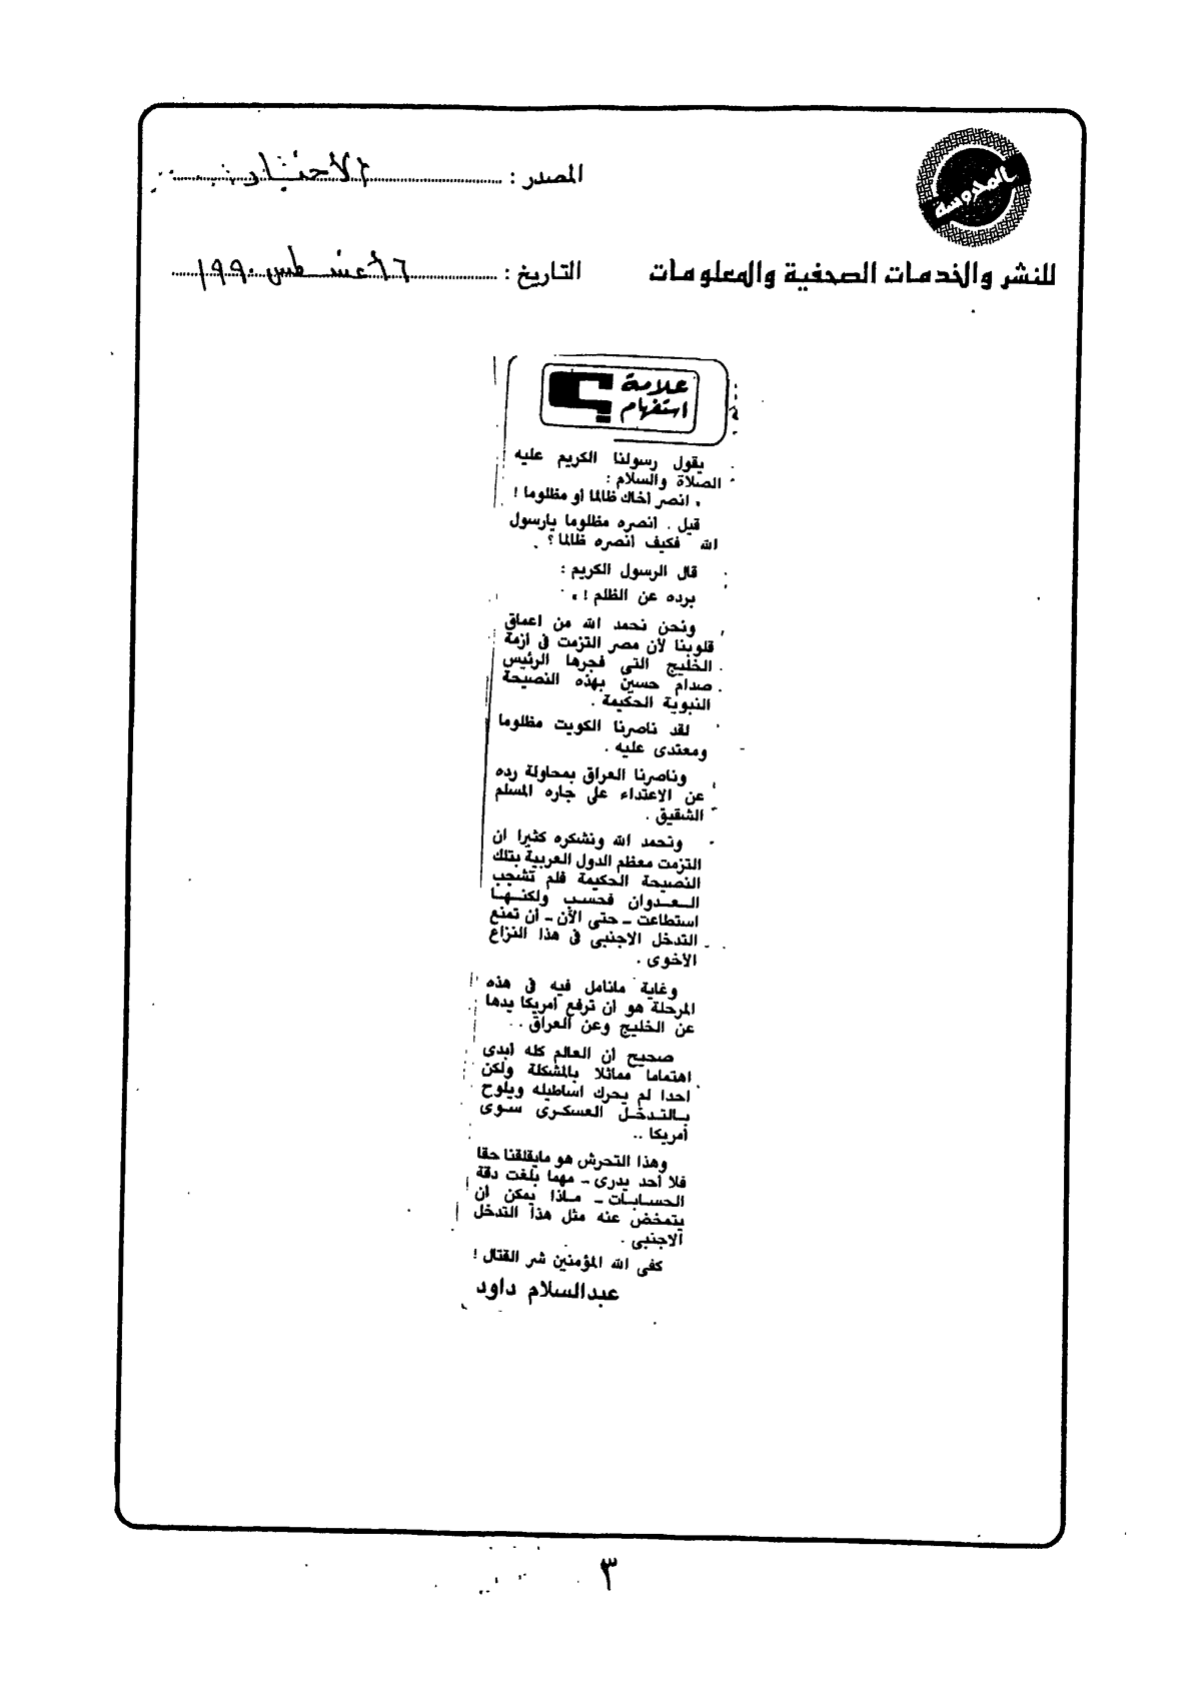 المحروسة
المصدر : الأخبار
للنشر والخدمات الصحفية والمعلومات
التاريخ : ٦ أغسطس ١٩٩٠
علامة
استفهام
يقول رسولنا الكريم عليه
الصلاة والسلام :
« انصر اخاك ظالما أو مظلوما !
قيل . انصره مظلوما يارسول
الله فكيف انصره ظالما ؟
قال الرسول الكريم :
برده عن الظلم ! »
ونحن نحمد الله من اعماق
قلوبنا لأن مصر التزمت فى أزمة
الخليج التى فجرها الرئيس
صدام حسين بهذه النصيحة
النبوية الحكيمة .
لقد ناصرنا الكويت مظلوما
ومعتدى عليه .
وناصرنا العراق بمحاولة رده
عن الاعتداء على جاره المسلم
الشقيق .
ونحمد الله ونشكره كثيرا ان
التزمت معظم الدول العربية بتلك
النصيحة الحكيمة فلم تشجب
العدوان فحسب ولكنها
استطاعت - حتى الأن - أن تمنع
التدخل الاجنبى فى هذا النزاع
الأخوى .
وغاية مانامل فيه فى هذه
المرحلة هو ان ترفع امريكا يدها
عن الخليج وعن العراق ..
صحيح أن العالم كله أبدى
اهتماما مماثلا بالمشكلة ولكن
احدا لم يحرك اساطيله ويلوح
بالتدخل العسكرى سوى
أمريكا ..
وهذا التحرش هو مايقلقنا حقا
فلا أحد يدرى - مهما بلغت دقة
الحسابات - ماذا يمكن ان
يتمخض عنه مثل هذا التدخل
الاجنبى .
كفى الله المؤمنين شر القتال !
عبدالسلام داود
٣